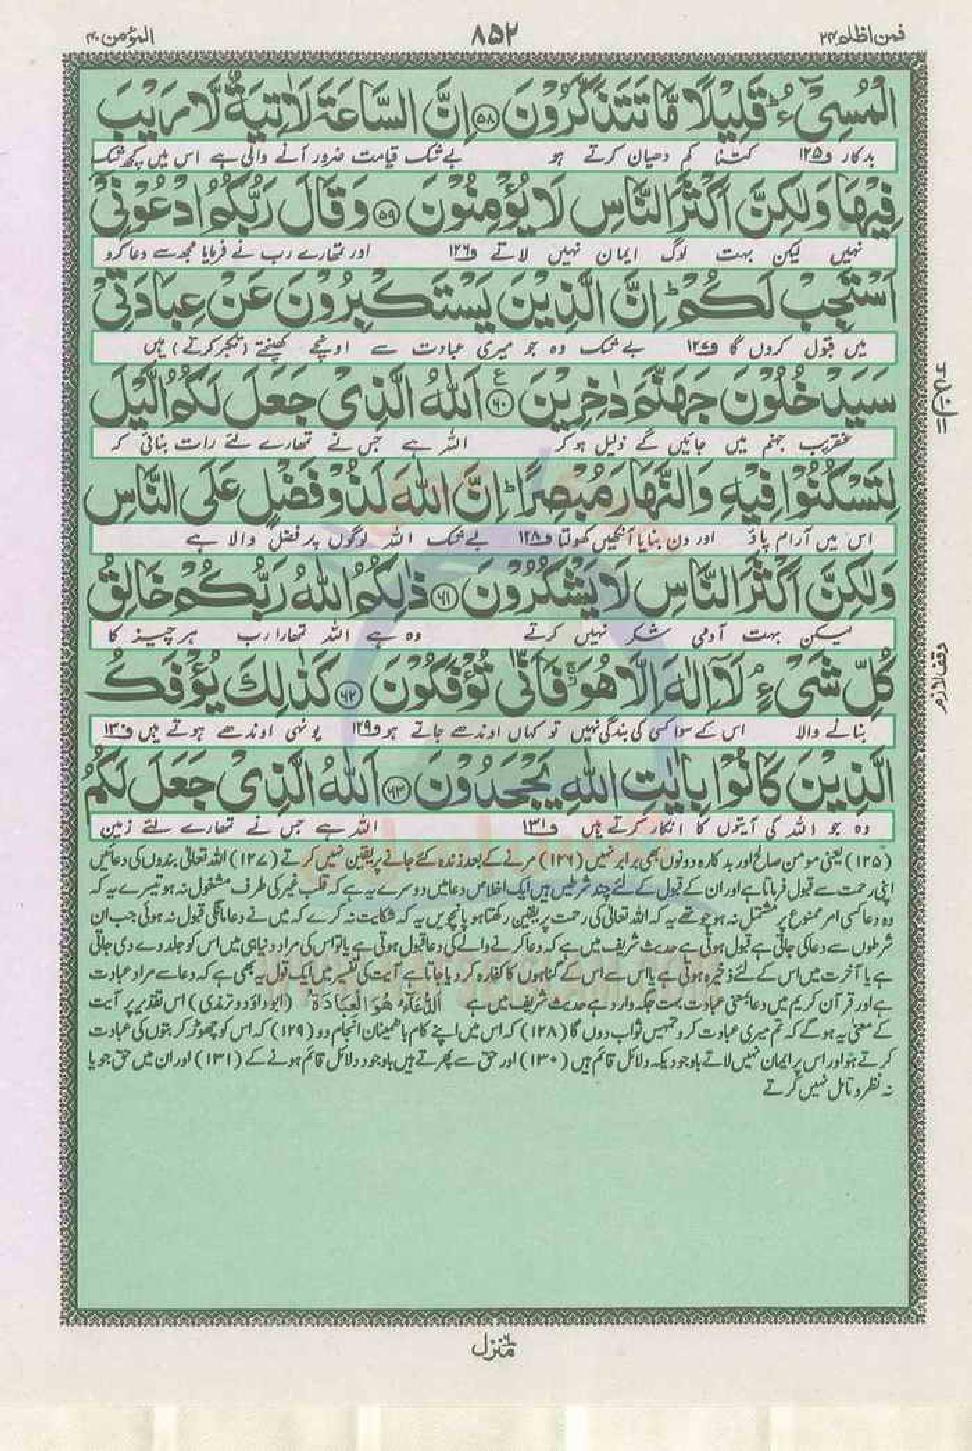 فمن اظلم ۲۴
۸۵۲
المؤمن ۴۰
الْمُسِیْٓءُ ؕ قَلِیْلًا مَّا تَتَذَكَّرُوْنَ ﴿۵۸﴾ اِنَّ السَّاعَةَ لَاٰتِیَةٌ لَّا رَیْبَ
بدکار ف۱۲۵ کتنا کم دھیان کرتے ہو بے شک قیامت ضرور آنے والی ہے اس میں کچھ شک
فِیْهَا وَلٰكِنَّ اَكْثَرَ النَّاسِ لَا یُؤْمِنُوْنَ ﴿۵۹﴾ وَقَالَ رَبُّكُمُ ادْعُوْنِیْۤ
نہیں لیکن بہت لوگ ایمان نہیں لاتے ف۱۲۶ اور تمھارے رب نے فرمایا مجھ سے دعا کرو
اَسْتَجِبْ لَكُمْ ؕ اِنَّ الَّذِیْنَ یَسْتَكْبِرُوْنَ عَنْ عِبَادَتِیْ
میں قبول کروں گا ف۱۲۷ بے شک وہ جو میری عبادت سے اونچے کھینچتے (تکبر کرتے) ہیں
سَیَدْخُلُوْنَ جَهَنَّمَ دٰخِرِیْنَ ﴿۶۰﴾ ع اَللّٰهُ الَّذِیْ جَعَلَ لَكُمُ الَّیْلَ
عنقریب جہنم میں جائیں گے ذلیل ہوکر اللہ ہے جس نے تمھارے لئے رات بنائی کر
لِتَسْكُنُوْا فِیْهِ وَالنَّهَارَ مُبْصِرًا ؕ اِنَّ اللّٰهَ لَذُوْ فَضْلٍ عَلَی النَّاسِ
اس میں آرام پاؤ اور دن بنایا آنکھیں کھولتا ف۱۲۸ بے شک اللہ لوگوں پر فضل والا ہے
وَلٰكِنَّ اَكْثَرَ النَّاسِ لَا یَشْكُرُوْنَ ﴿۶۱﴾ ذٰلِكُمُ اللّٰهُ رَبُّكُمْ خَالِقُ
لیکن بہت آدمی شکر نہیں کرتے وہ ہے اللہ تمھارا رب ہر چیز کا
كُلِّ شَیْءٍ ۘ لَاۤ اِلٰهَ اِلَّا هُوَ ۚ فَاَنّٰی تُؤْفَكُوْنَ ﴿۶۲﴾ كَذٰلِكَ یُؤْفَكُ
بنانے والا اس کے سوا کسی کی بندگی نہیں تو کہاں اوندھے جاتے ہو ف۱۲۹ یونہی اوندھے ہوتے ہیں ف۱۳۰
الَّذِیْنَ كَانُوْا بِاٰیٰتِ اللّٰهِ یَجْحَدُوْنَ ﴿۶۳﴾ اَللّٰهُ الَّذِیْ جَعَلَ لَكُمُ
وہ جو اللہ کی آیتوں کا انکار کرتے ہیں ف۱۳۱ اللہ ہے جس نے تمھارے لئے زمین
(۱۲۵) یعنی مومن صالح اور بدکار وہ دونوں بھی برابر نہیں (۱۲۶) مرنے کے بعد زندہ کئے جانے پر یقین نہیں کرتے (۱۲۷) اللہ تعالیٰ بندوں کی دعائیں
اپنی رحمت سے قبول فرماتا ہے اور ان کے قبول کے لئے چند شرطیں ہیں ایک اخلاص دعا میں دوسرے یہ ہے کہ قلب غیر کی طرف مشغول نہ ہو تیسرے یہ کہ
وہ دعا کسی امر ممنوع پر مشتمل نہ ہو چوتھے یہ کہ اللہ تعالیٰ کی رحمت پر یقین رکھتا ہو پانچویں یہ کہ شکایت نہ کرے کہ میں نے دعا مانگی قبول نہ ہوئی جب ان
شرطوں سے دعا کی جاتی ہے قبول ہوتی ہے حدیث شریف میں ہے کہ دعا کرنے والے کی دعا قبول ہوتی ہے یا تو اس کی مراد دنیا ہی میں اس کو جلد دے دی جاتی
ہے یا آخرت میں اس کے لئے ذخیرہ ہوتی ہے یا اس سے اس کے گناہوں کا کفارہ کر دیا جاتا ہے آیت کی تفسیر میں ایک قول یہ بھی ہے کہ دعا سے مراد عبادت
ہے اور قرآن کریم میں دعا بمعنی عبادت بہت جگہ وارد ہے حدیث شریف میں ہے اَلدُّعَاءُ هُوَ الْعِبَادَةُ (ابو داؤد و ترمذی) اس تقدیر پر آیت
کے معنی یہ ہوں گے کہ تم میری عبادت کرو تمہیں ثواب دوں گا (۱۲۸) کہ اس میں اپنے کام باطمینان انجام دو (۱۲۹) کہ اس کو چھوڑ کر بتوں کی عبادت
کرتے ہو اور اس پر ایمان نہیں لاتے باوجودیکہ دلائل قائم ہیں (۱۳۰) اور حق سے پھرتے ہیں باوجود دلائل قائم ہونے کے (۱۳۱) اور ان میں حق جو یا
نہ نظر و تامل نہیں کرتے
وقف لازم
منزل ۶